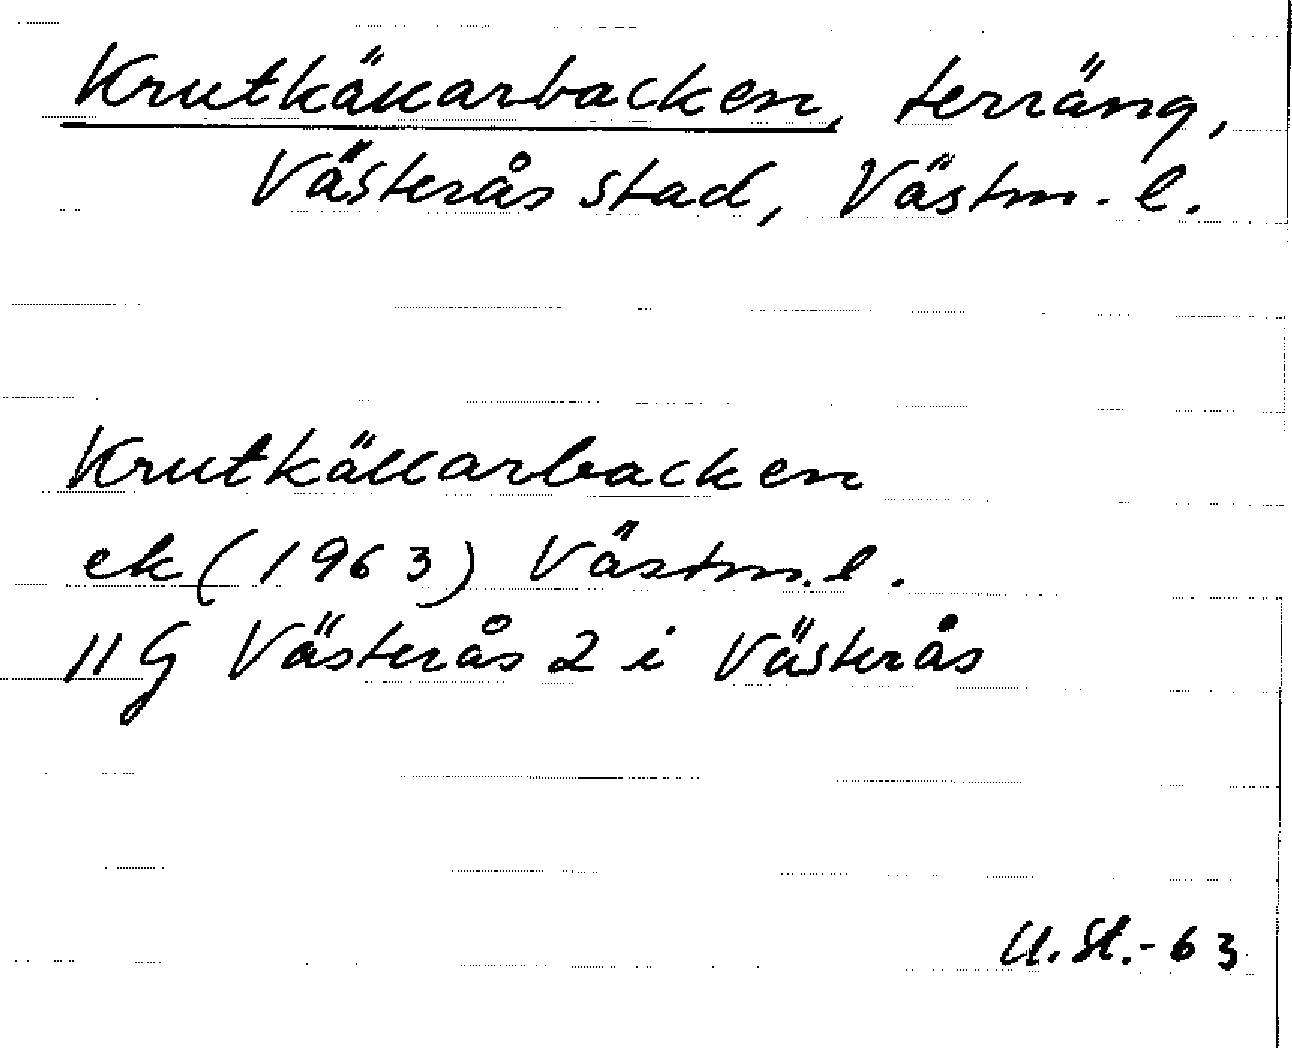 Krutkällarbacken, terräng,
Västerås stad, Västm. l.
Krutkällarbacken
ek (1963) Västm. l.
11G Västerås 2 i Västerås
U. St. - 63